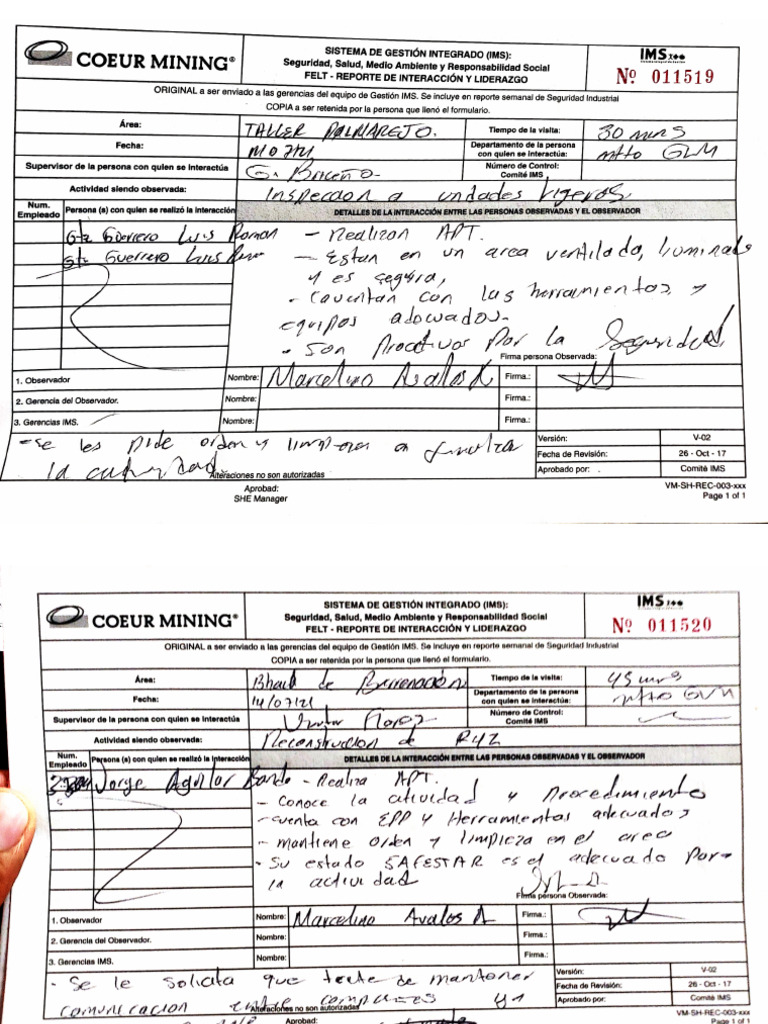 COEUR MINING®
SISTEMA DE GESTIÓN INTEGRADO (IMS):
Seguridad, Salud, Medio Ambiente y Responsabilidad Social
FELT - REPORTE DE INTERACCIÓN Y LIDERAZGO
IMS
Nº 011519
ORIGINAL a ser enviado a las gerencias del equipo de Gestión IMS. Se incluye en reporte semanal de Seguridad Industrial
COPIA a ser retenida por la persona que llenó el formulario.
Área: TALLER PALMAREJO. Tiempo de la visita: 30 mins
Fecha: Departamento de la persona con quien se interactúa: mtto GLM
Supervisor de la persona con quien se interactúa G. Briceño Número de Control: Comité IMS
Actividad siendo observada: Inspeccion a unidades ligeras
Num. Empleado Persona (s) con quien se realizó la interacción DETALLES DE LA INTERACCIÓN ENTRE LAS PERSONAS OBSERVADAS Y EL OBSERVADOR
Guerrero Luis Roman - Realizan APT.
Guerrero Luis - Estan en un area ventilada,
y es segura,
- Cuentan con las herramientas y
equipos adecuados-
- Son Proactivos por la Seguridad
Firma persona Observada:
1. Observador Nombre: Marcelino Avalos A Firma.:
2. Gerencia del Observador. Nombre: Firma.:
3. Gerencias IMS. Nombre: Firma.:
- se les pide orden y limpieza
la
Versión: V-02
Fecha de Revisión: 26 - Oct - 17
Aprobado por: Comité IMS
Alteraciones no son autorizadas
Aprobad:
SHE Manager
VM-SH-REC-003-xxx
Page 1 of 1
COEUR MINING®
SISTEMA DE GESTIÓN INTEGRADO (IMS):
Seguridad, Salud, Medio Ambiente y Responsabilidad Social
FELT - REPORTE DE INTERACCIÓN Y LIDERAZGO
IMS
Nº 011520
ORIGINAL a ser enviado a las gerencias del equipo de Gestión IMS. Se incluye en reporte semanal de Seguridad Industrial
COPIA a ser retenida por la persona que llenó el formulario.
Área: de Barrenación Tiempo de la visita: 45 mins
Fecha: 14/07/21 Departamento de la persona con quien se interactúa: mtto GLM
Supervisor de la persona con quien se interactúa Flores Número de Control: Comité IMS
Actividad siendo observada: Reconstruccion de
Num. Empleado Persona (s) con quien se realizó la interacción DETALLES DE LA INTERACCIÓN ENTRE LAS PERSONAS OBSERVADAS Y EL OBSERVADOR
Jorge Aguilar - Realiza APT.
- Conoce la atividad y Procedimientos
- cuenta con EPP y Herramientas adecuados
- mantiene orden y limpieza en el area
- Su estado SAFESTAR es el adecuado por-
la actividad
Firma persona Observada:
1. Observador Nombre: Marcelino Avalos A Firma.:
2. Gerencia del Observador. Nombre: Firma.:
3. Gerencias IMS. Nombre: Firma.:
- Se le solicita que trate de mantener
comunicacion entre
Versión: V-02
Fecha de Revisión: 26 - Oct - 17
Aprobado por: Comité IMS
Alteraciones no son autorizadas
Aprobad:
VM-SH-REC-003-xxx
Page 1 of 1